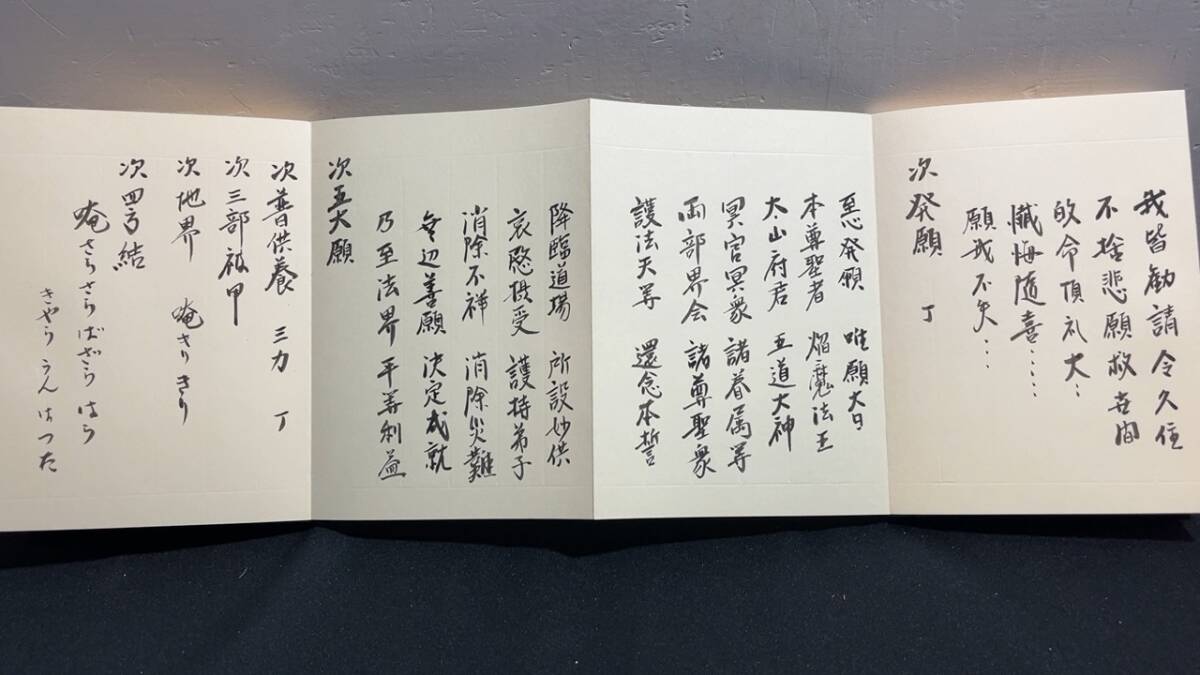 我皆勧請令久住
不捨悲願救世間
帰命頂礼大‥
懺悔随喜‥‥‥
願我不矢‥‥
次発願 丁
至心発願 唯願大日
本尊聖者 焔魔法王
太山府君 五道大神
冥官冥衆 諸眷属等
両部界会 諸尊聖衆
護法天等 還念本誓
降臨道場 所設妙供
哀愍供受 護持弟子
消除不祥 消除災難
無辺善願 決定成就
乃至法界 平等利益
次五大願
次普供養 三力 丁
次三部被甲
次地界 唵きりきり
次四方結
唵さらさらばざらはら
きやらうんはつた